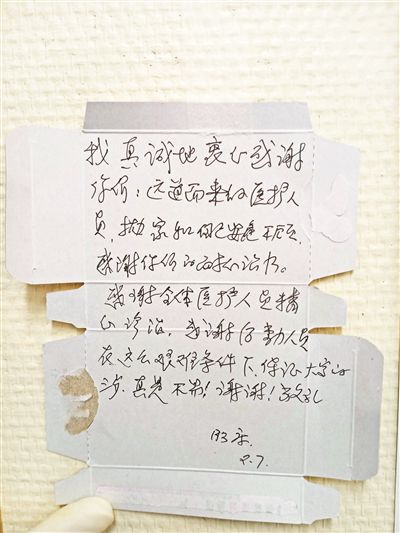 我真诚地衷心感谢
你们：远道而来的医护人
员，抛家
感谢你们的
感谢全体医护人员精
心诊治，感谢后勤人员
在这么艰难条件下，保证大家的
真是不易！谢谢！敬礼
83床
2.7.